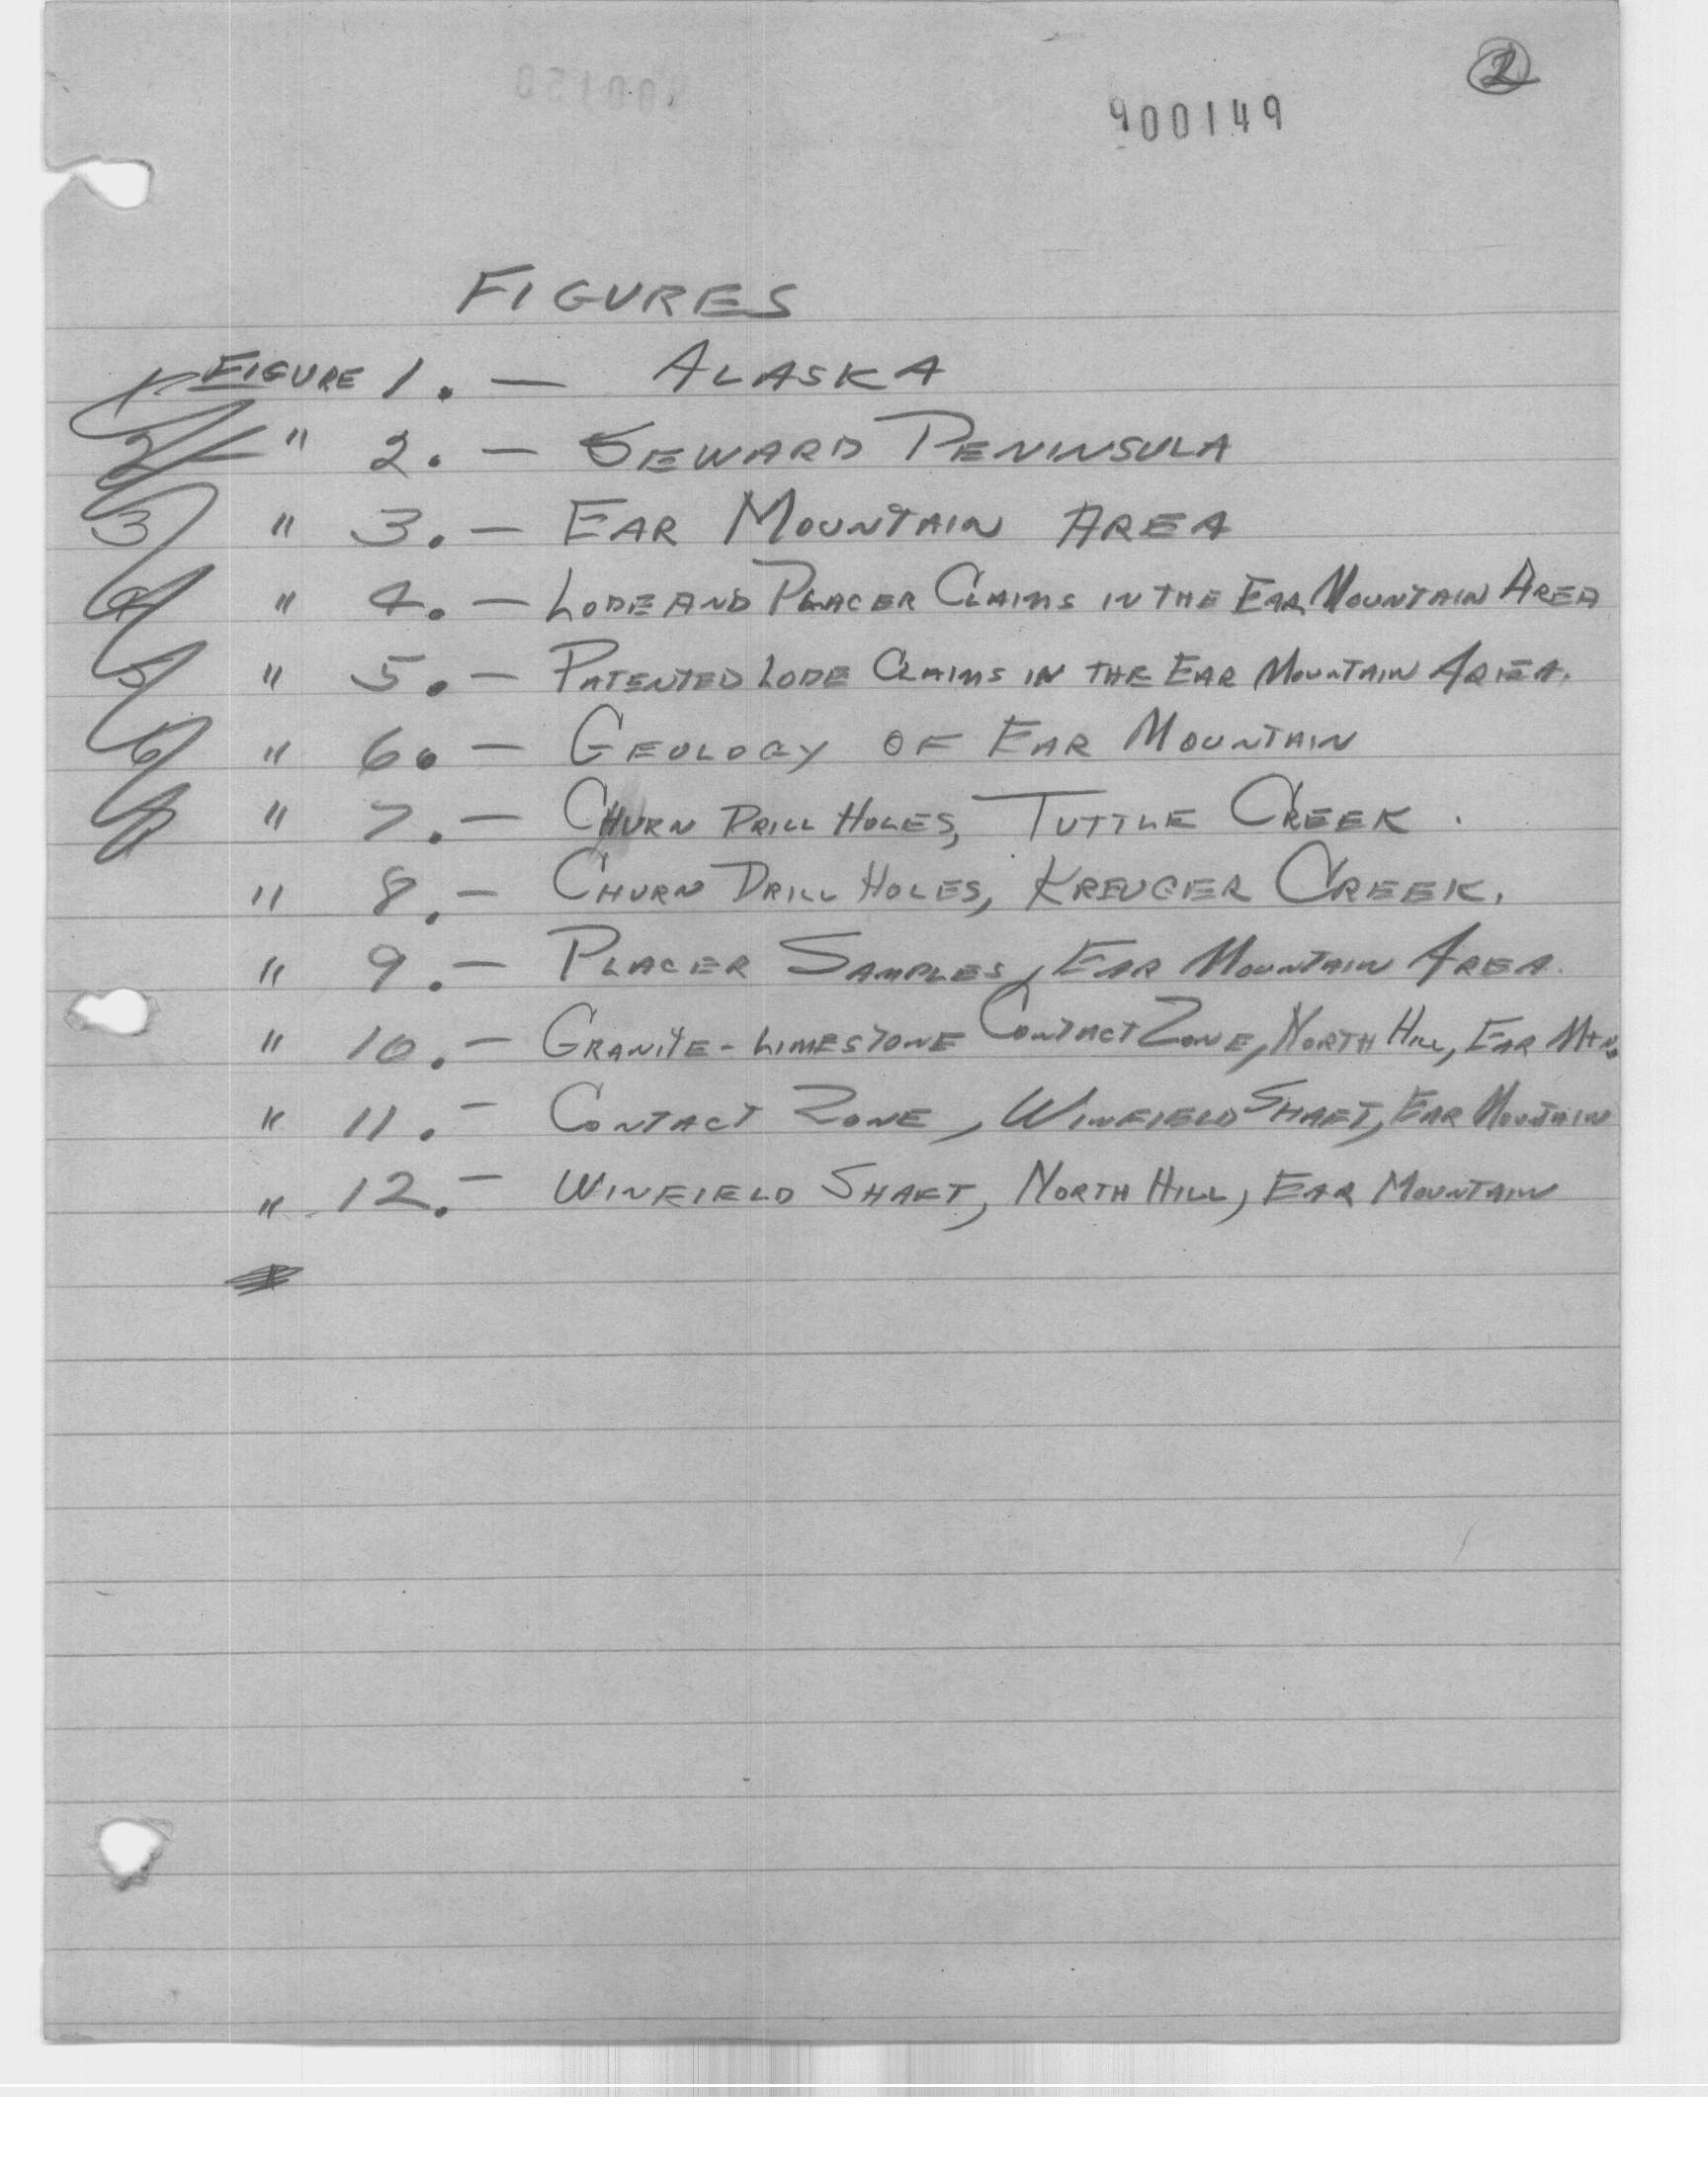 2
900149
FIGURES
FIGURE 1. — ALASKA
" 2. — SEWARD PENINSULA
" 3. — EAR MOUNTAIN AREA
" 4. — LODE AND PLACER CLAIMS IN THE EAR MOUNTAIN AREA
" 5. — PATENTED LODE CLAIMS IN THE EAR MOUNTAIN AREA.
" 6. — GEOLOGY OF EAR MOUNTAIN
" 7. — CHURN DRILL HOLES, TUTTLE CREEK.
" 8. — CHURN DRILL HOLES, KREUGER CREEK.
" 9. — PLACER SAMPLES, EAR MOUNTAIN AREA.
" 10. — GRANITE-LIMESTONE CONTACT ZONE, NORTH HILL, EAR MTN.
" 11. — CONTACT ZONE, WINFIELD SHAFT, EAR MOUNTAIN
" 12. — WINFIELD SHAFT, NORTH HILL, EAR MOUNTAIN